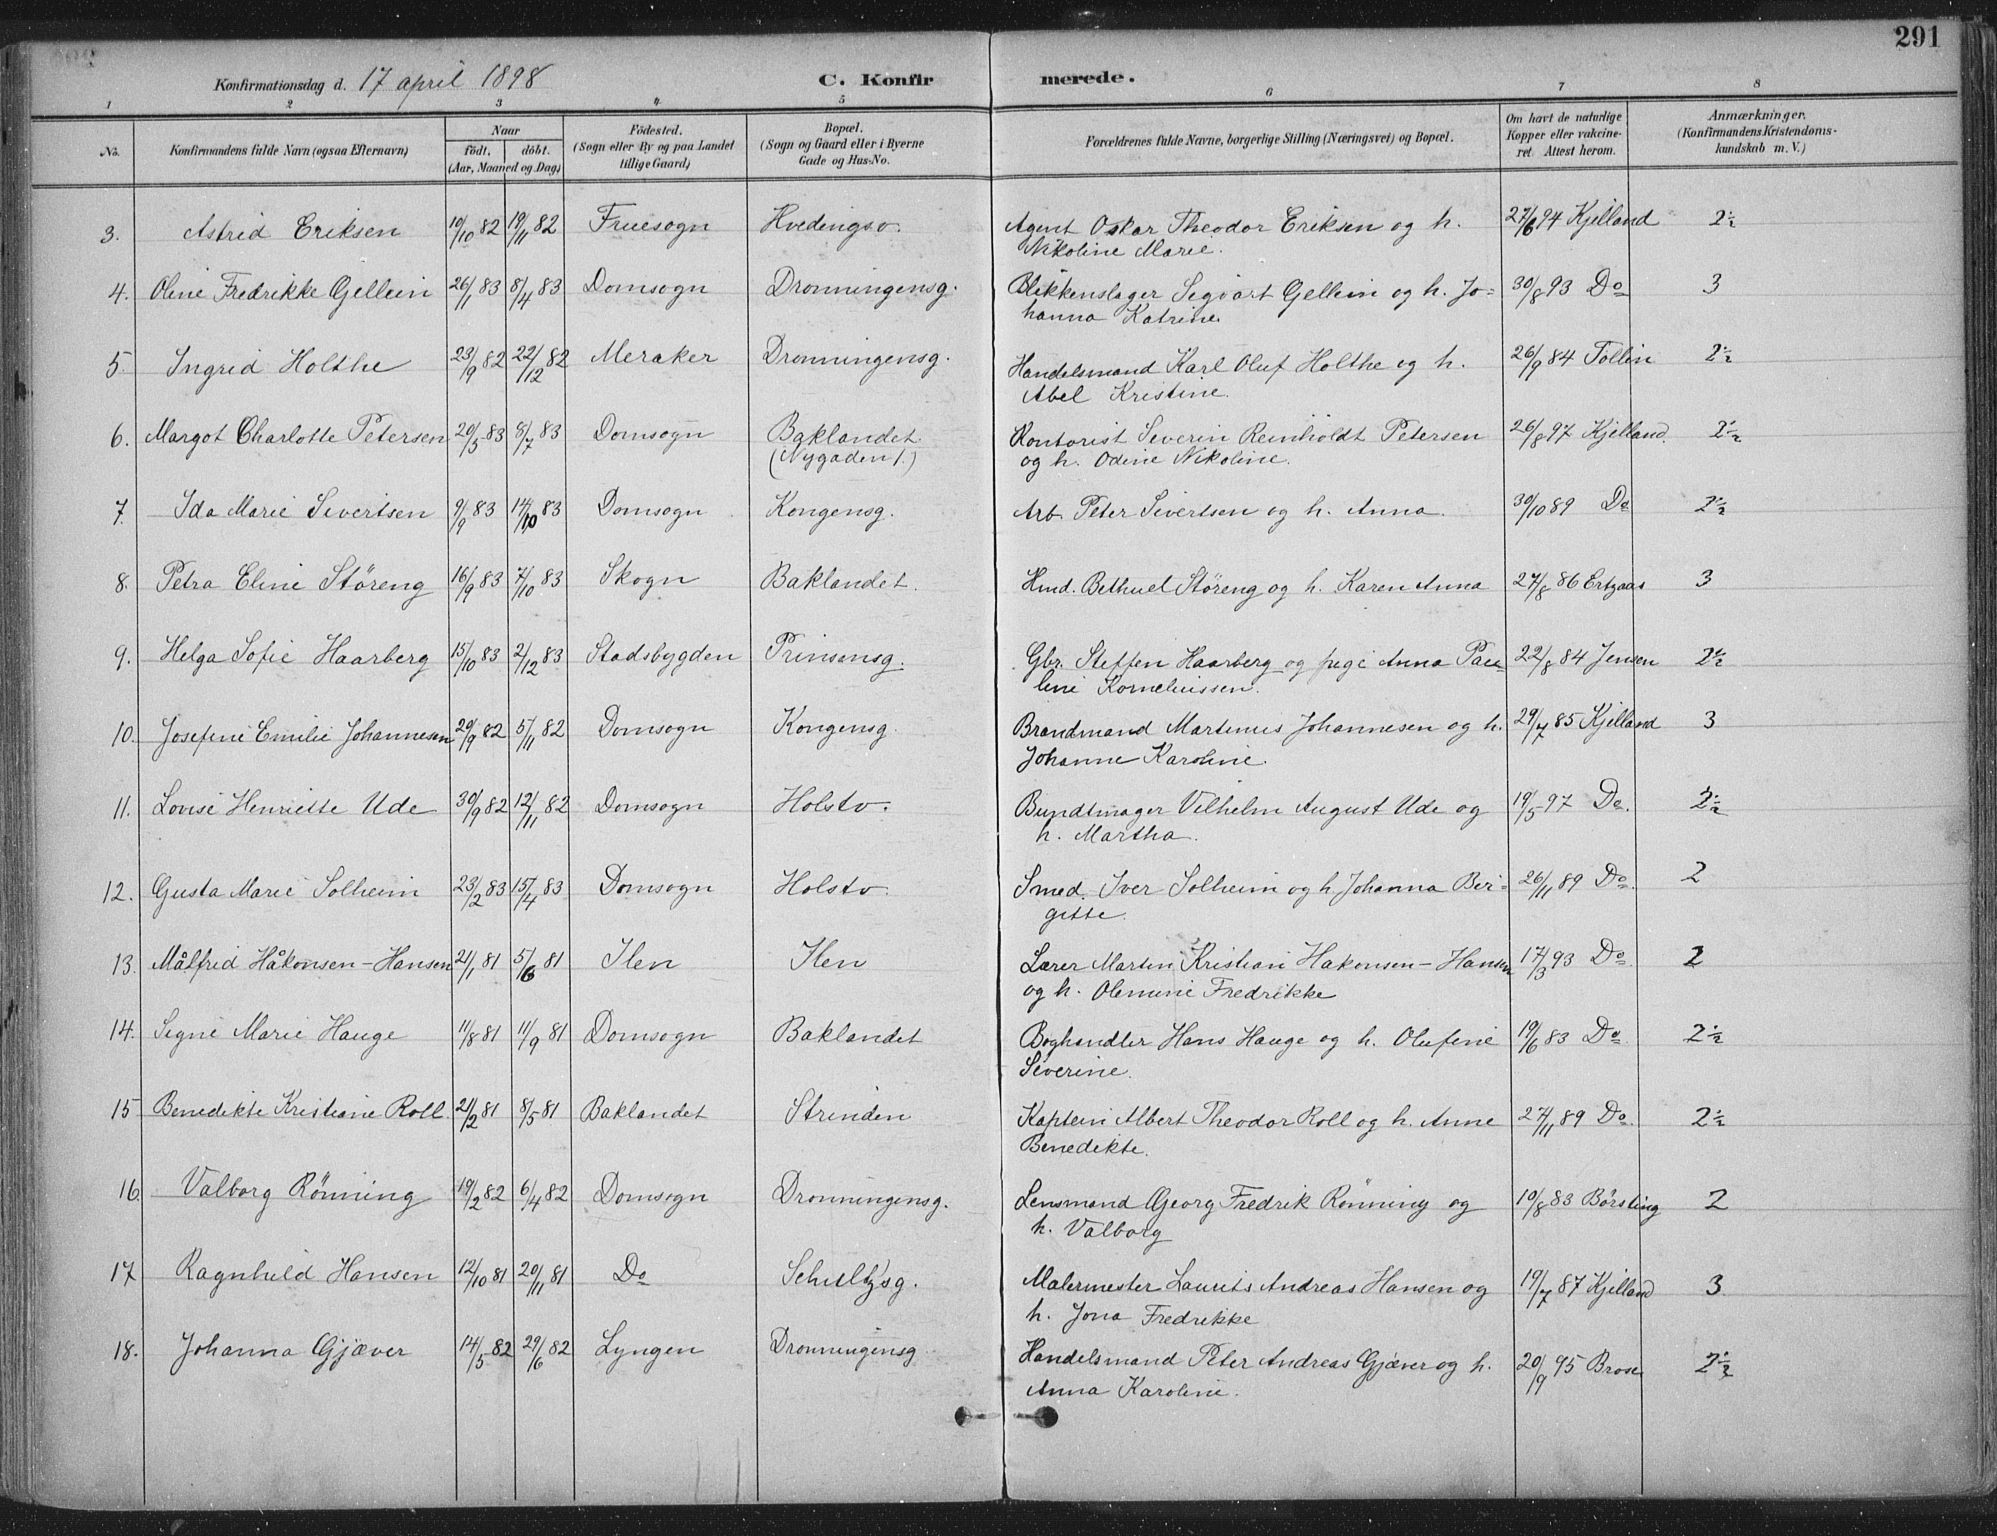 291
Konfirmationsdag d. 17 april 1898 C. Konfirmerede.
1 2 3 4 5 6 7 8
No. Konfirmandens fulde Navn (ogsaa Efternavn) Naar Født. døbt. (Aar, Maaned og Dag) Fødested. (Sogn eller By og paa Landet tillige Gaard) Bopæl. (Sogn og Gaard eller i Byerne Gade og Hus-No. Forældrenes fulde Navne, borgerlige Stilling (Næringsvei) og Bopæl. Om havt de naturlige Kopper eller vakcineret. Attest herom. Anmærkninger. (Konfirmandens Kristendomskundskab m. V.)
3. Astrid Eriksen 19/10 82 19/11 82 Fruesogn Hvedingsv. Agent Oskar Theodor Eriksen og h. 27/6 94 Kjelland 2½
Nikoline Marie.
4. Oline Fredrikke Gellein 26/1 83 8/4 83 Domsogn Dronningensg. Blikkenslager Sigvart Gellein og h. Jo- 30/8 93 Do 3
hanna Katrine
5. Ingrid Holthe 23/9 82 22/12 82 Meraker Dronningensg. Handelsmand Karl Oluf Holthe og h. 26/9 84 Tollin 2½
Abel Kristine.
6. Margot Charlotte Petersen 20/5 83 8/7 83 Domsogn Baklandet Kontorist Severin Reinholdt Petersen 26/8 97 Kjelland. 2½
(Nygaden 1.) og h. Odine Nikoline.
7. Ida Marie Sivertsen 9/9 83 14/10 83 Domsogn Kongensg. Arb. Peter Sivertsen og h. Anna. 30/10 89 Do 2½
8. Petra Eline Störeng 16/9 83 7/10 83 Skogn Baklandet. Hmd. Bethuel Störeng og h. Karen Anna 27/8 86 Ertzaas 3
9. Helga Sofie Haarberg 15/10 83 2/12 83 Stadsbygden Prinsensg. Gbr. Steffen Haarberg og pige Anna Pau- 22/8 84 Jensen 2½
line Korneliussen.
10. Josefine Emilie Johannesen 29/9 82 5/11 82 Domsogn Kongensg. Brandmand Martinus Johannesen og h. 29/7 85 Kjelland 3
Johanne Karoline.
11. Lovise Henriette Ude 30/9 82 12/11 82 Domsogn Holstv. Bundtmager Vilhelm August Ude og 19/5 97 Do. 2½
h. Martha.
12. Gusta Marie Solheim 23/2 83 15/4 83 Domsogn Holstv. Smed. Iver Solheim og h. Johanna Ber- 26/11 89 Do. 2
gitte.
13. Målfrid Håkonsen-Hansen 21/1 81 5/6 81 Ilen Ilen Lærer Martin Kristian Hakonsen-Hansen 17/3 93 Do. 2
og h. Olemine Fredrikke
14. Signe Marie Hauge 11/8 81 11/9 81 Domsogn Baklandet Boghandler Hans Hauge og h. Olufine 19/6 83 Do. 2½
Severine.
15 Benedikte Kristiane Roll. 21/2 81 8/5 81 Baklandet Strinden Kaptein Albert Theodor Roll og h. Anne 27/11 89 Do. 2½
Benedikte.
16. Valborg Rönning 19/2 82 6/4 82 Domsogn Dronningensg. Lensmand Georg Fredrik Rönning og 10/8 83 Börsting 2
h. Valborg
17 Ragnhild Hansen 12/10 81 20/11 81 Do Schultzsg. Malermester Laurits Andreas Hansen og 19/7 87 Kjelland 3.
h. Jona Fredrikke
18. Johanna Gjæver 14/5 82 29/6 82 Lyngen Dronningensg Handelsmand Peter Andreas Gjæver og h. 20/9 95 Brose 2½
Anna Karoline.